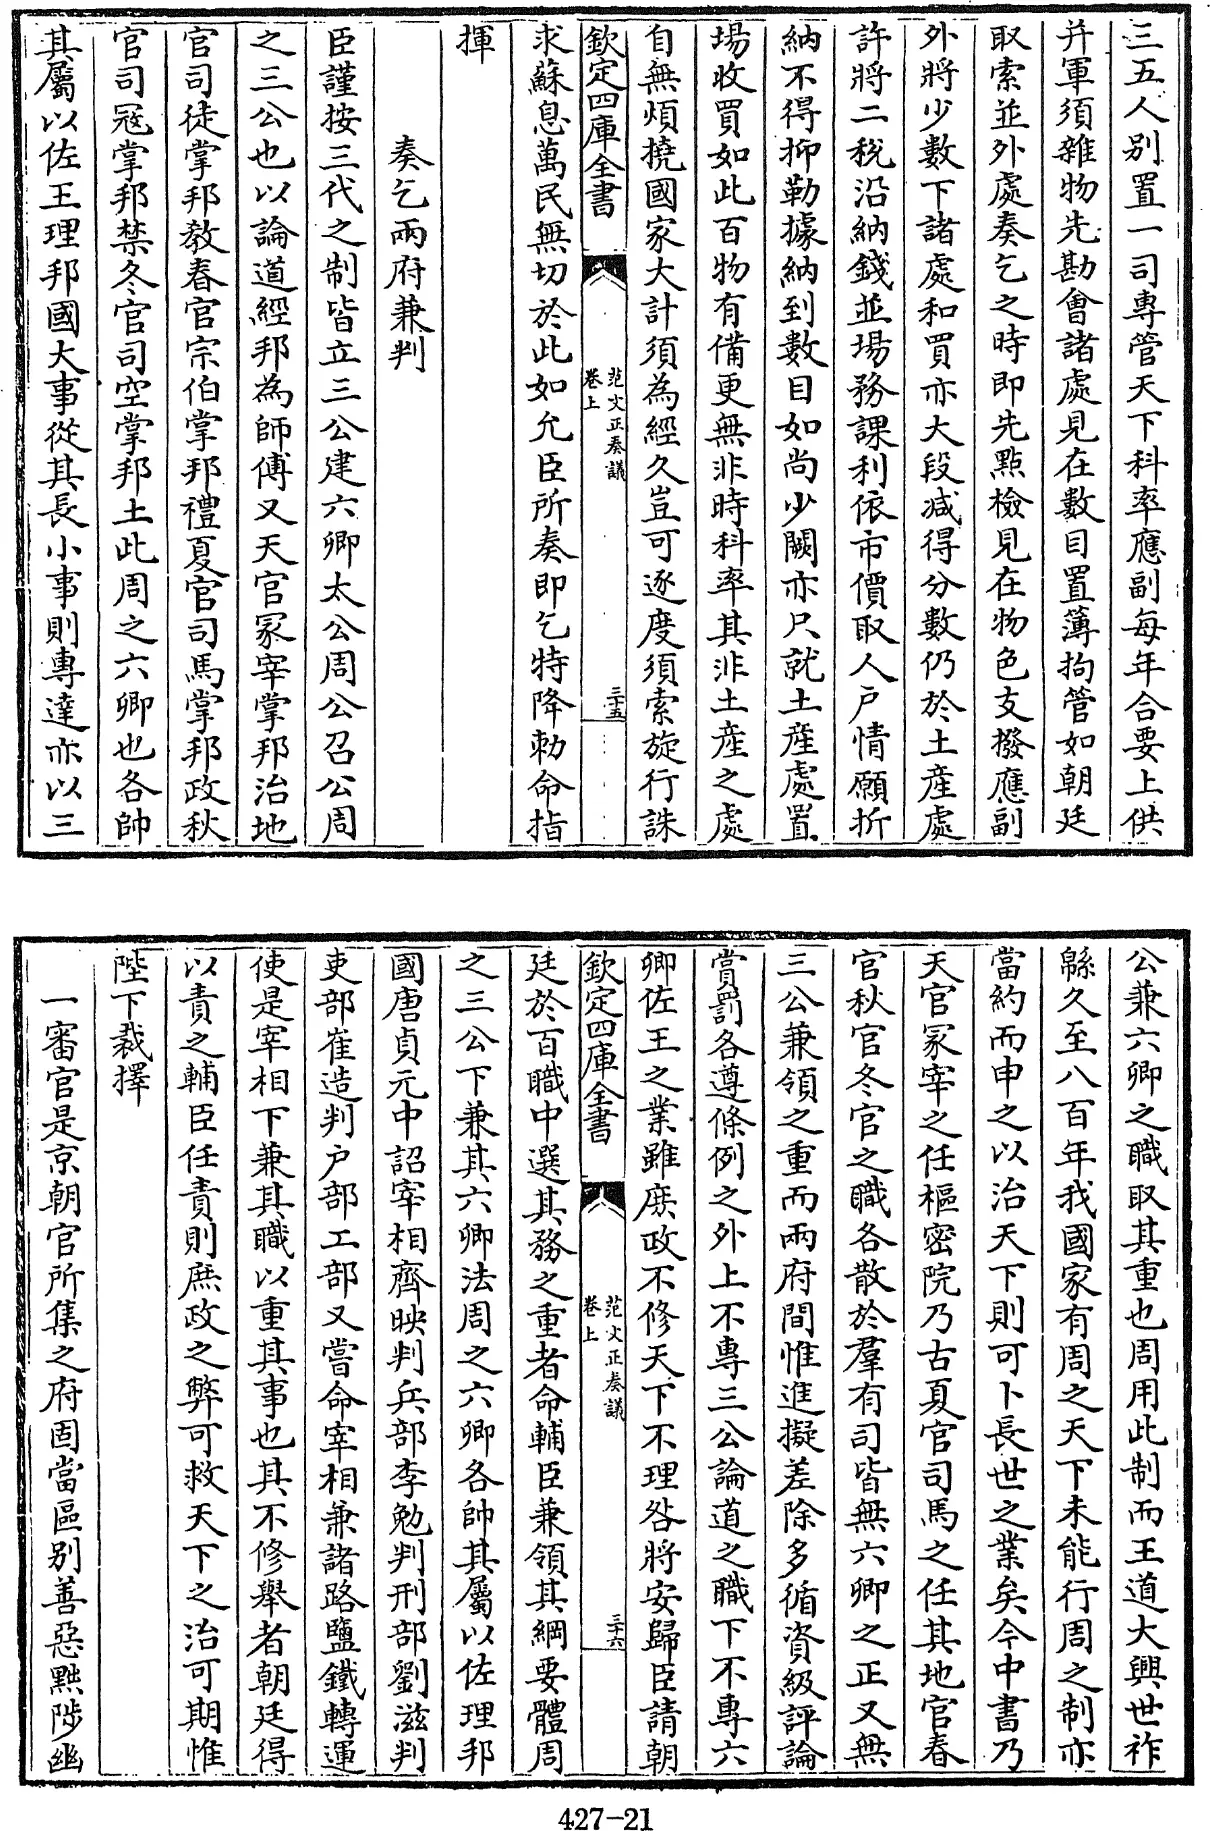 三五人别置一司專管天下科率應副每年合要上供
并軍須雜物先勘會諸處見在數目置薄拘管如朝廷
取索並外處奏乞之時即先㸃檢見在物色支撥應副
外將少數下諸處和買亦大段减得分數仍於土産處
許將二稅沿納錢並場務課利依市價取人户情願折
納不得抑勒據納到數目如尚少闕亦只就土産處置
場收買如此百物有備更無非時科率其非土産之處
自無煩撓國家大計須為經久豈可逐度須索旋行誅
欽定四庫全書
范文正奏議
卷上
三十五
求蘇息萬民無切於此如允臣所奏即乞特降勅命指
揮
奏乞兩府兼判
臣謹按三代之制皆立三公建六卿太公周公召公周
之三公也以論道經邦為師傅又天官冢宰掌邦治地
官司徒掌邦敎春官宗伯掌邦禮夏官司馬掌邦政秋
官司冦掌邦禁冬官司空掌邦土此周之六卿也各帥
其屬以佐王理邦國大事從其長小事則專達亦以三
公兼六卿之職取其重也周用此制而王道大興世祚
緜久至八百年我國家有周之天下未能行周之制亦
當約而申之以治天下則可卜長世之業矣今中書乃
天官冢宰之任樞密院乃古夏官司馬之任其地官春
官秋官冬官之職各散於羣有司皆無六卿之正又無
三公兼領之重而兩府間惟進擬差除多循資級評論
賞罰各遵條例之外上不專三公論道之職下不專六
卿佐王之業雖庶政不修天下不理咎將安歸臣請朝
欽定四庫全書
范文正奏議
卷上
三十六
廷於百職中選其務之重者命輔臣兼領其綱要體周
之三公下兼其六卿法周之六卿各帥其屬以佐理邦
國唐貞元中詔宰相齊映判兵部李勉判刑部劉滋判
吏部崔造判户部工部又嘗命宰相兼諸路鹽鐵轉運
使是宰相下兼其職以重其事也其不修舉者朝廷得
以責之輔臣任責則庶政之弊可救天下之治可期惟
陛下裁擇
一審官是京朝官所集之府固當區别善惡黜陟幽
427-21